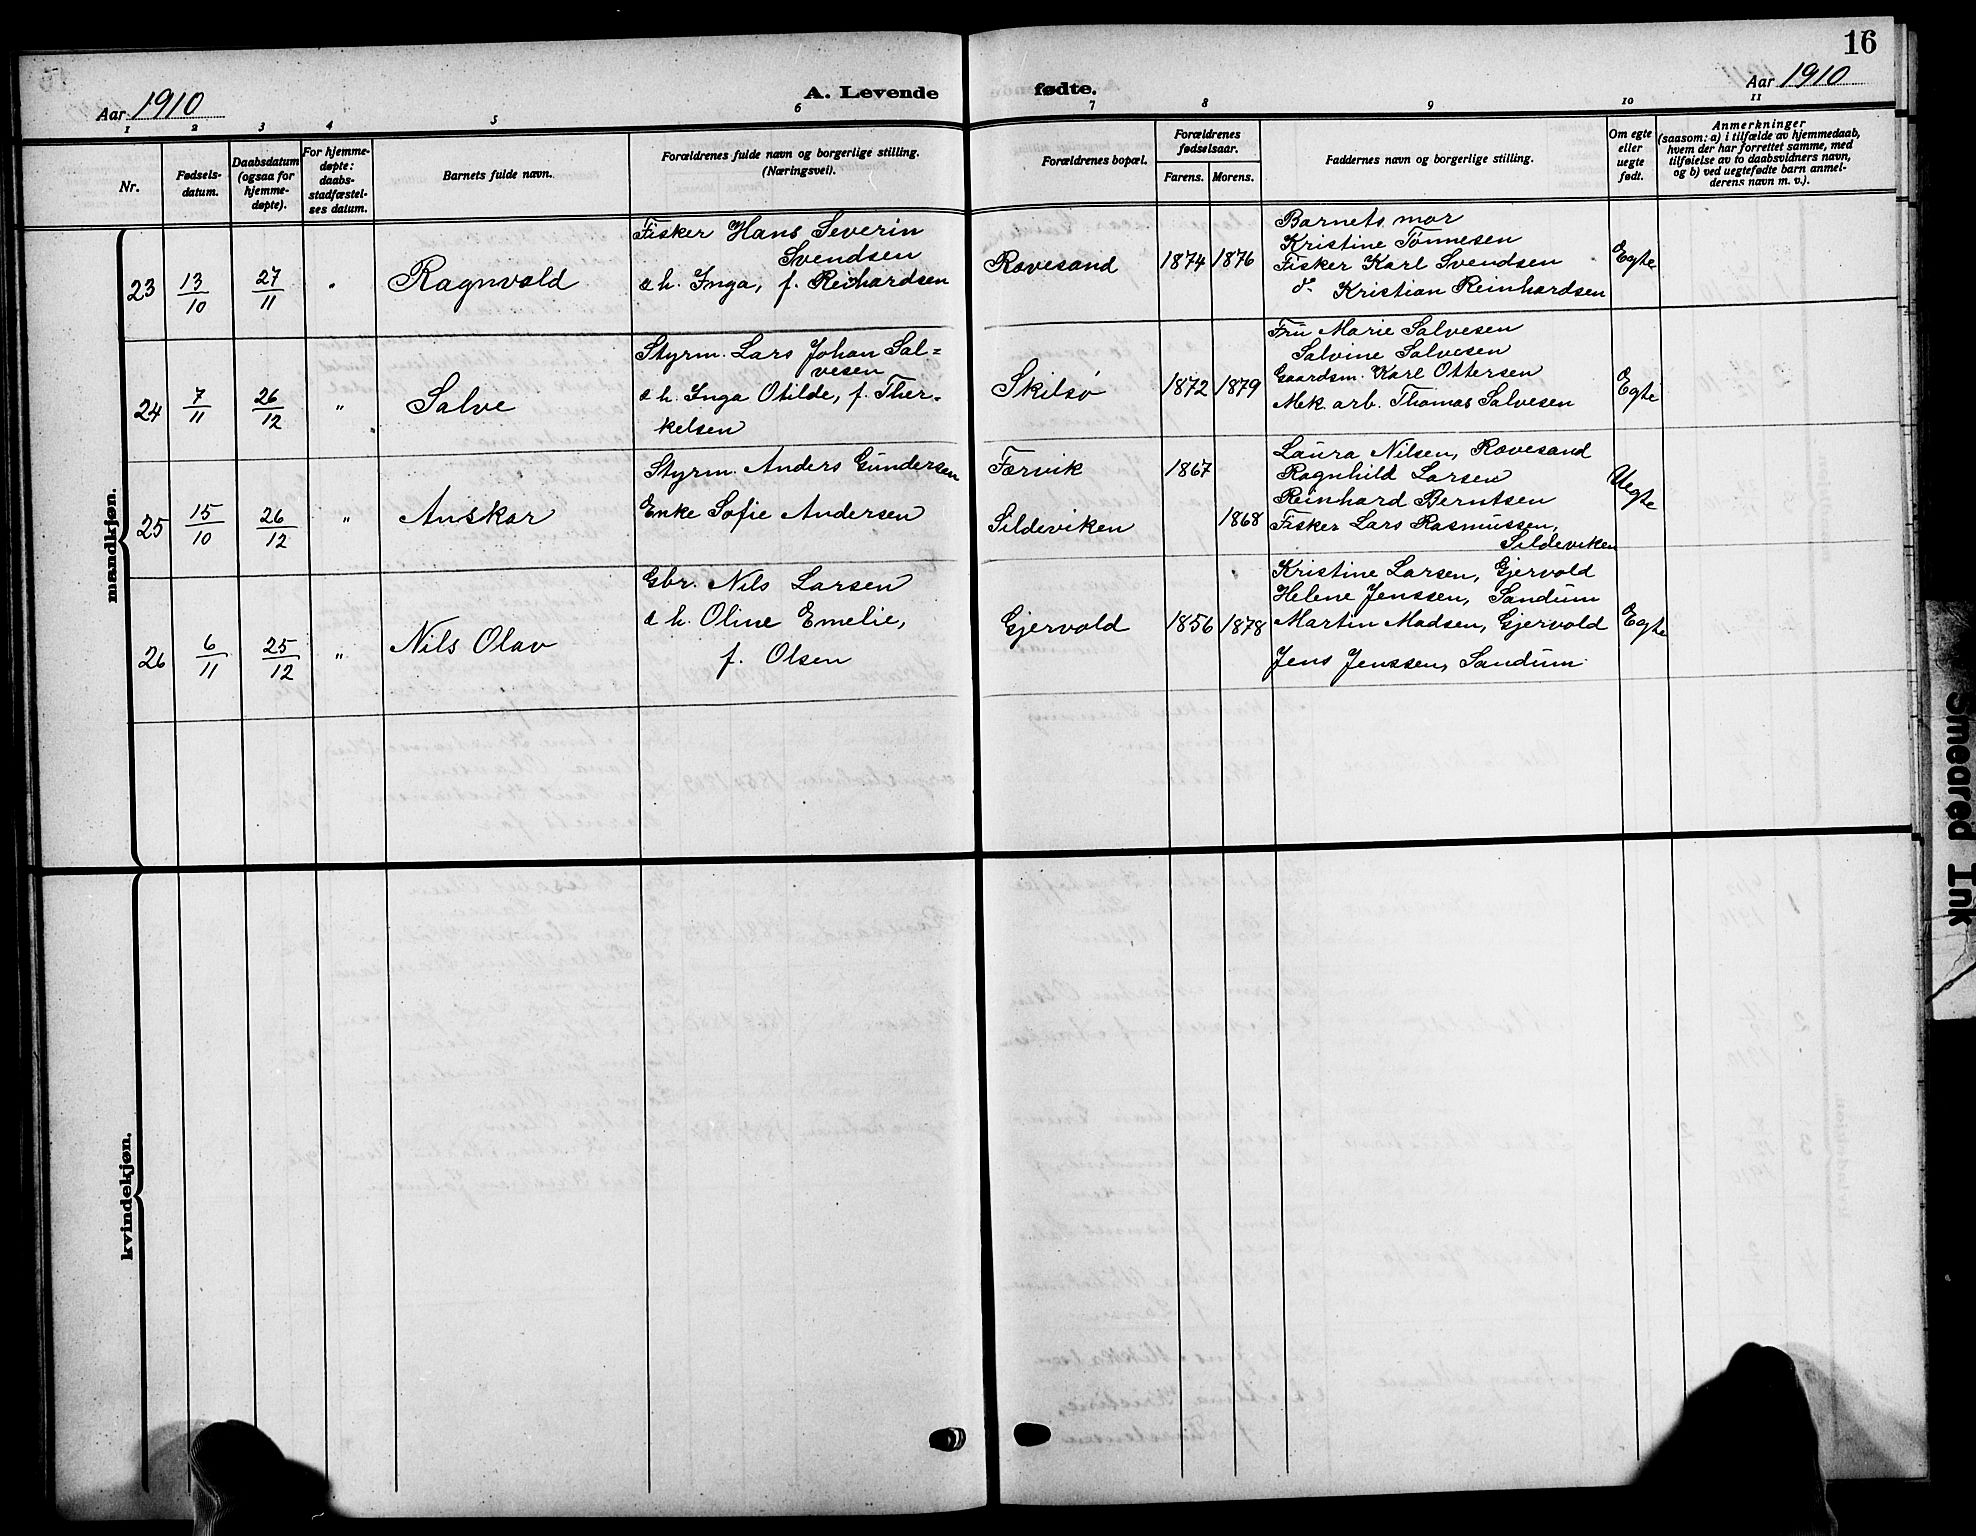 16
Aar 1910
A. Levende
fødte.
Aar 1910
1 2 3 4 5 6 7 8 9 10 11
Nr.
Fødsels-
datum.
Daabsdatum
(ogsaa for
hjemme-
døpte).
For hjemme-
døpte:
daabs-
stadfæstel-
ses datum.
Barnets fulde navn.
Forældrenes fulde navn og borgerlige stilling.
(Næringsvei).
Forældrenes bopæl.
Forældrenes
fødselsaar.
Farens. Morens.
Faddernes navn og borgerlige stilling.
Om egte
eller
uegte
født.
Anmerkninger
(saasom: a) i tilfælde av hjemmedaab,
hvem der har forrettet samme, med
tilføielse av to daabsvidners navn,
og b) ved uegtefødte barn anmel-
derens navn m. v.).
mandkjøn.
23 13/10 27/11 " Ragnvald
Fisker Hans Severin
Svendsen
o h. Inga, f. Reinhardsen
Rævesand 1874 1876
Barnets mor
Kristine Tønnesen
Fisker Karl Svendsen
do. Kristian Reinhardsen
Egte
24 7/11 26/12 " Salve
Styrm. Lars Johan Sal=
vesen
o h. Inga Otilde, f. Ther-
kelsen
Skilsø 1872 1879
Fru Marie Salvesen
Salvine Salvesen
Gaardsm. Karl Ottersen
Mek. arb. Thomas Salvesen
Egte
25 15/10 26/12 " Anskar
Styrm. Anders Gundersen
Enke Sofie Andersen
Færvik 1867
Sildeviken 1868
Laura Nilsen, Rævesand
Ragnhild Larsen
Reinhard Berntsen
Fisker Lars Rasmussen,
Sildeviken
Uegte
26 6/11 25/12 " Nils Olav
Gbr. Nils Larsen
o h. Oline Emelie,
f. Olsen
Gjervold 1856 1878
Kristine Larsen, Gjervold
Helene Jenssen, Sandum
Martin Madsen, Gjervold
Jens Jenssen, Sandum
Egte
kvindekjøn.
Smeared Ink